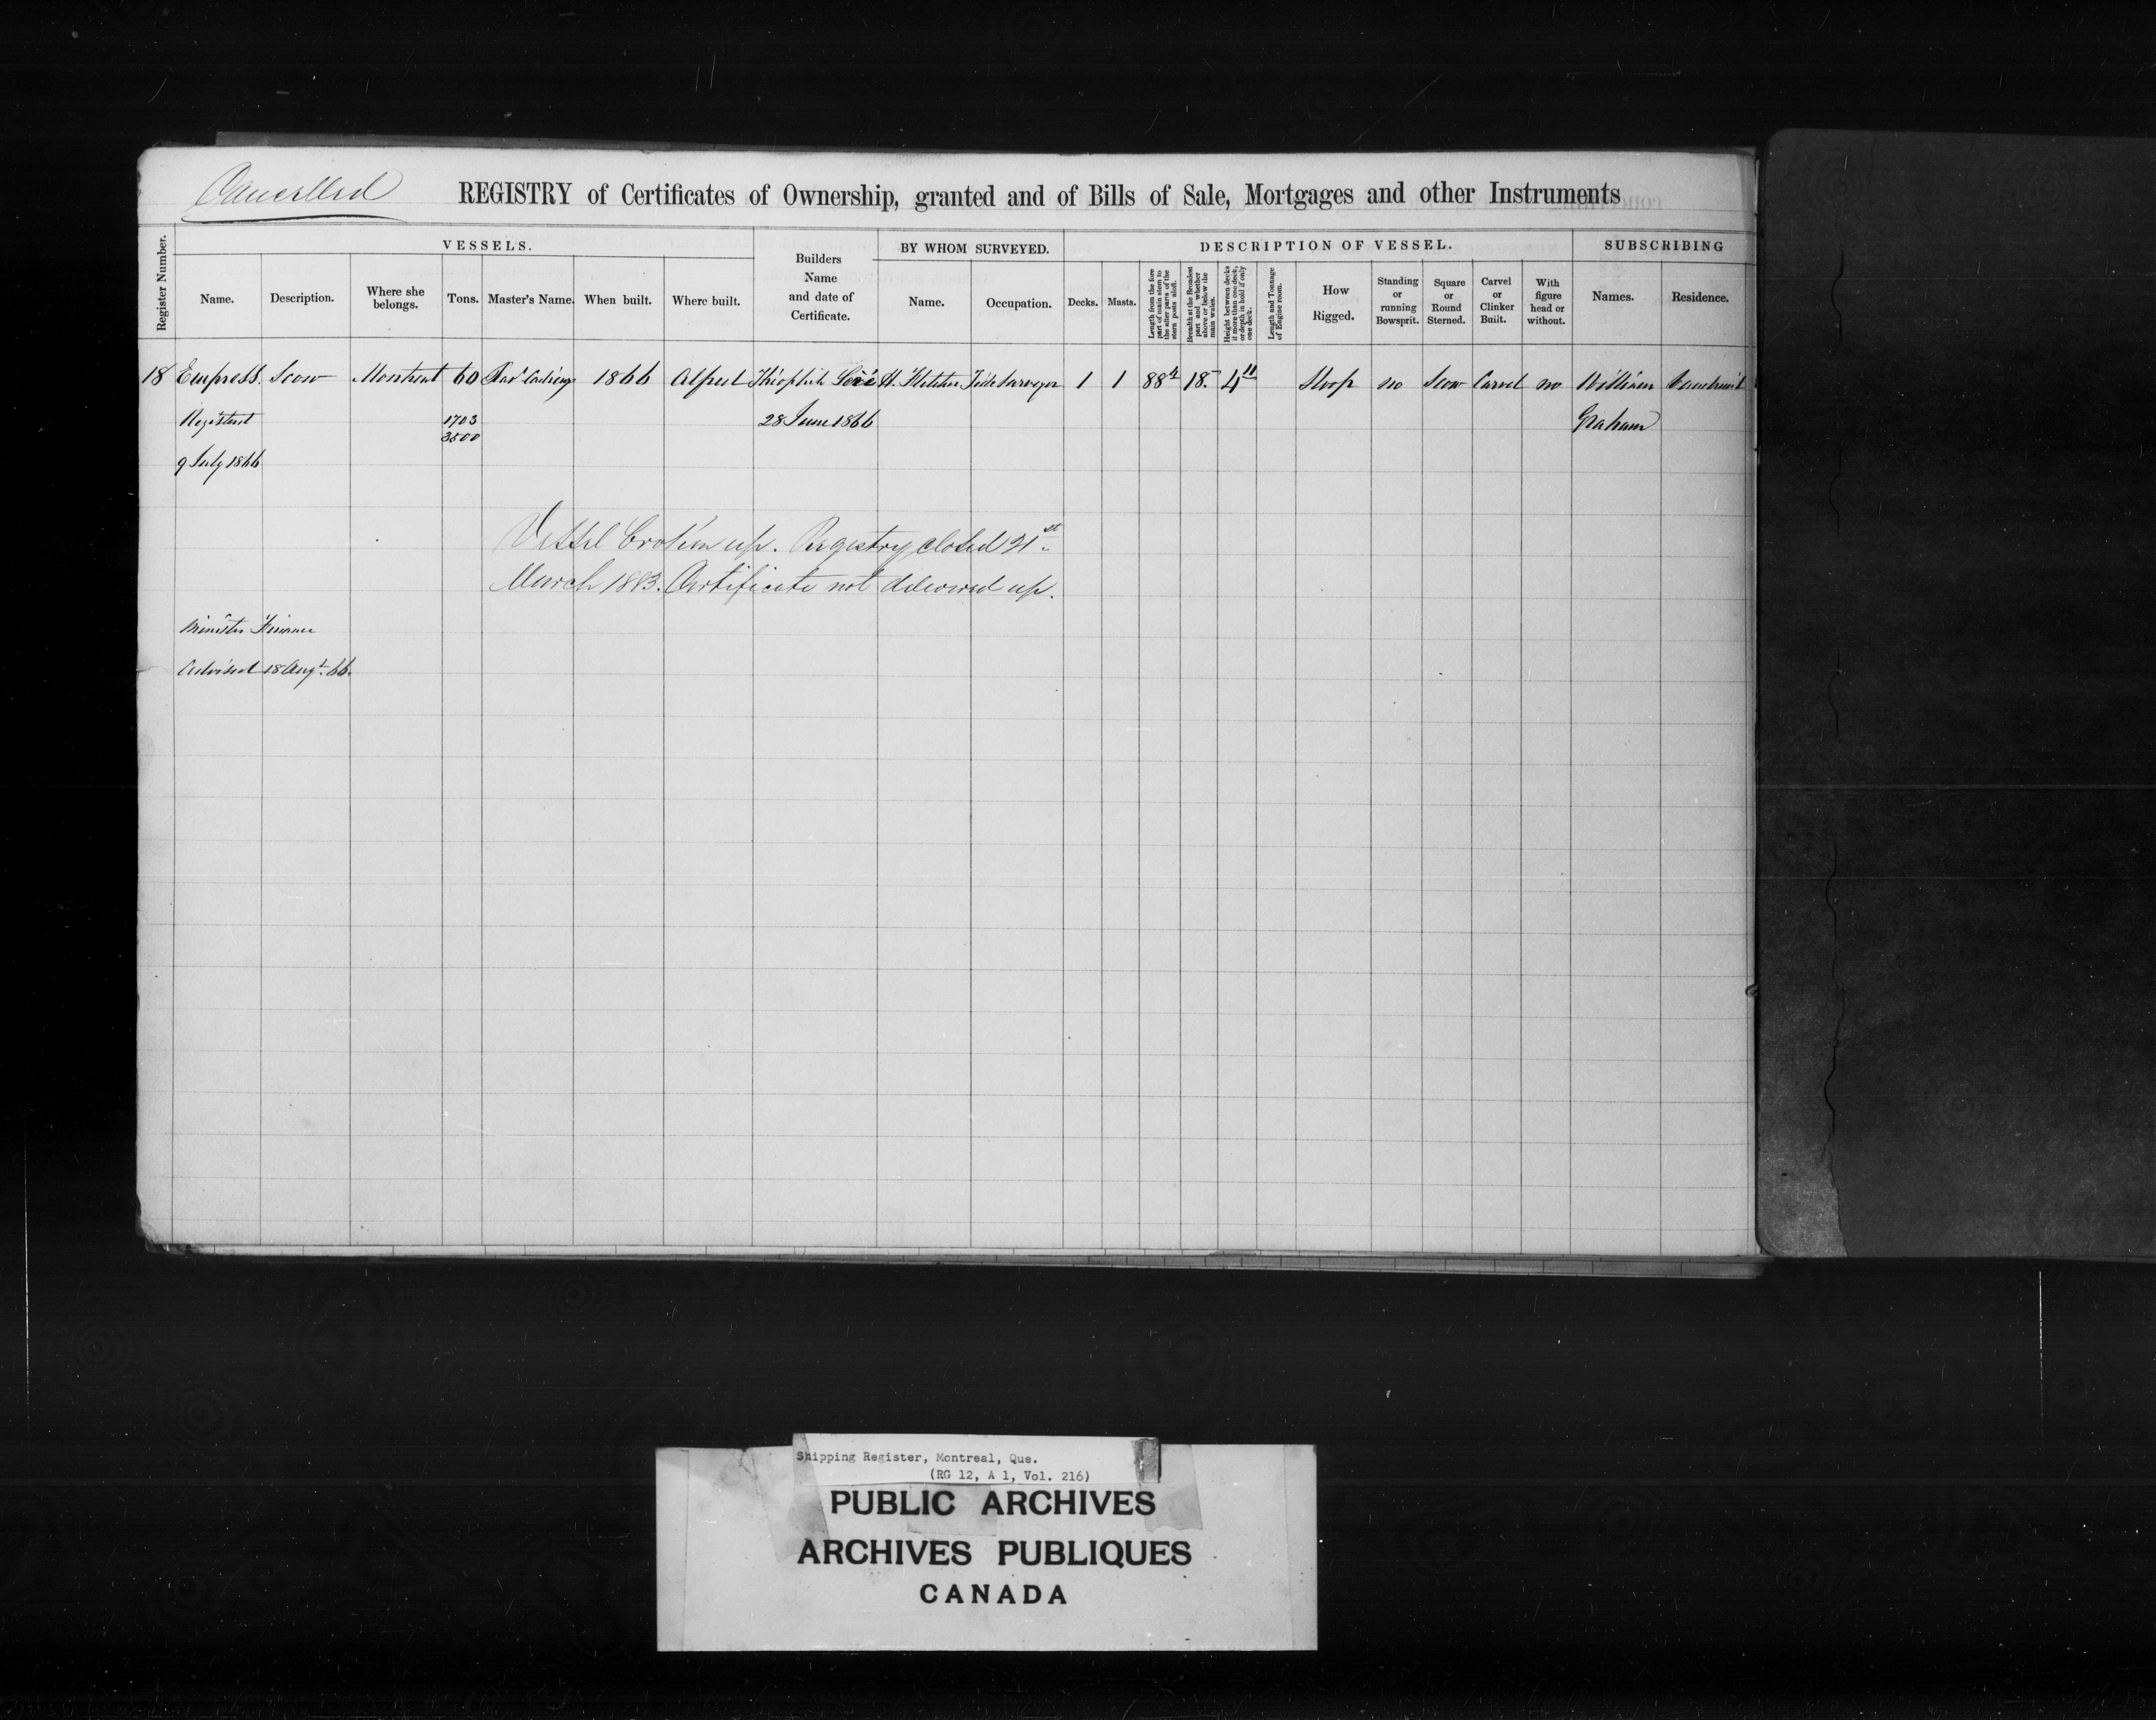 Cancelled
REGISTRY of Certificates of Ownership, granted and of Bills of Sale, Mortgages and other Instruments
Register Number.
VESSELS.
Name.
Description.
Where she
belongs.
Tons.
Master's Name.
When built.
Where built.
Builders
Name
and date of
Certificate.
BY WHOM SURVEYED.
Name.
Occupation.
DESCRIPTION OF VESSEL.
Decks.
Masts.
Length from the fore
part of main stem to
the after parts of the
stern posts aloft.
Breadth at the Broadest
part and whether
above or below the
main wales.
Height between decks
if more than one deck,
or depth in hold if only
one deck.
Length and Tonnage
of Engine room.
How
Rigged.
Standing
or
running
Bowsprit.
Square
or
Round
Sterned.
Carvel
or
Clinker
Built.
With
figure
head or
without.
SUBSCRIBING
Names.
Residence.
18 Empress. Scow Montreal 60 1866 Alfred Théophile H. Fletcher Tide Surveyor 1 1 88 4 18.- 4 11 Sloop no Scow Carvel no William Vaudreuil
Registered 1703 28 June 1866 Graham
3500
9 July 1866
Vessel broken up. Registry closed 21st
March 1893. Certificate not delivered up.
Minister Finance
Advised 18 Augt. 66.
Shipping Register, Montreal, Que.
(RG 12, A 1, Vol. 216)
PUBLIC ARCHIVES
ARCHIVES PUBLIQUES
CANADA